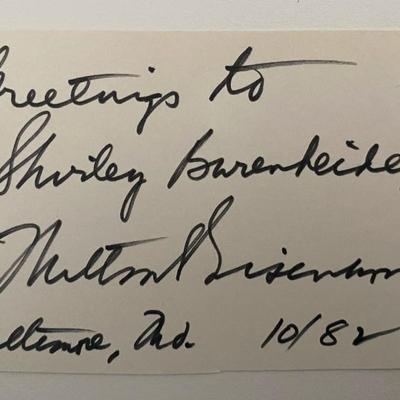 Greetings to
Shirley
Milton Eisenhower
Baltimore, Md. 10/82